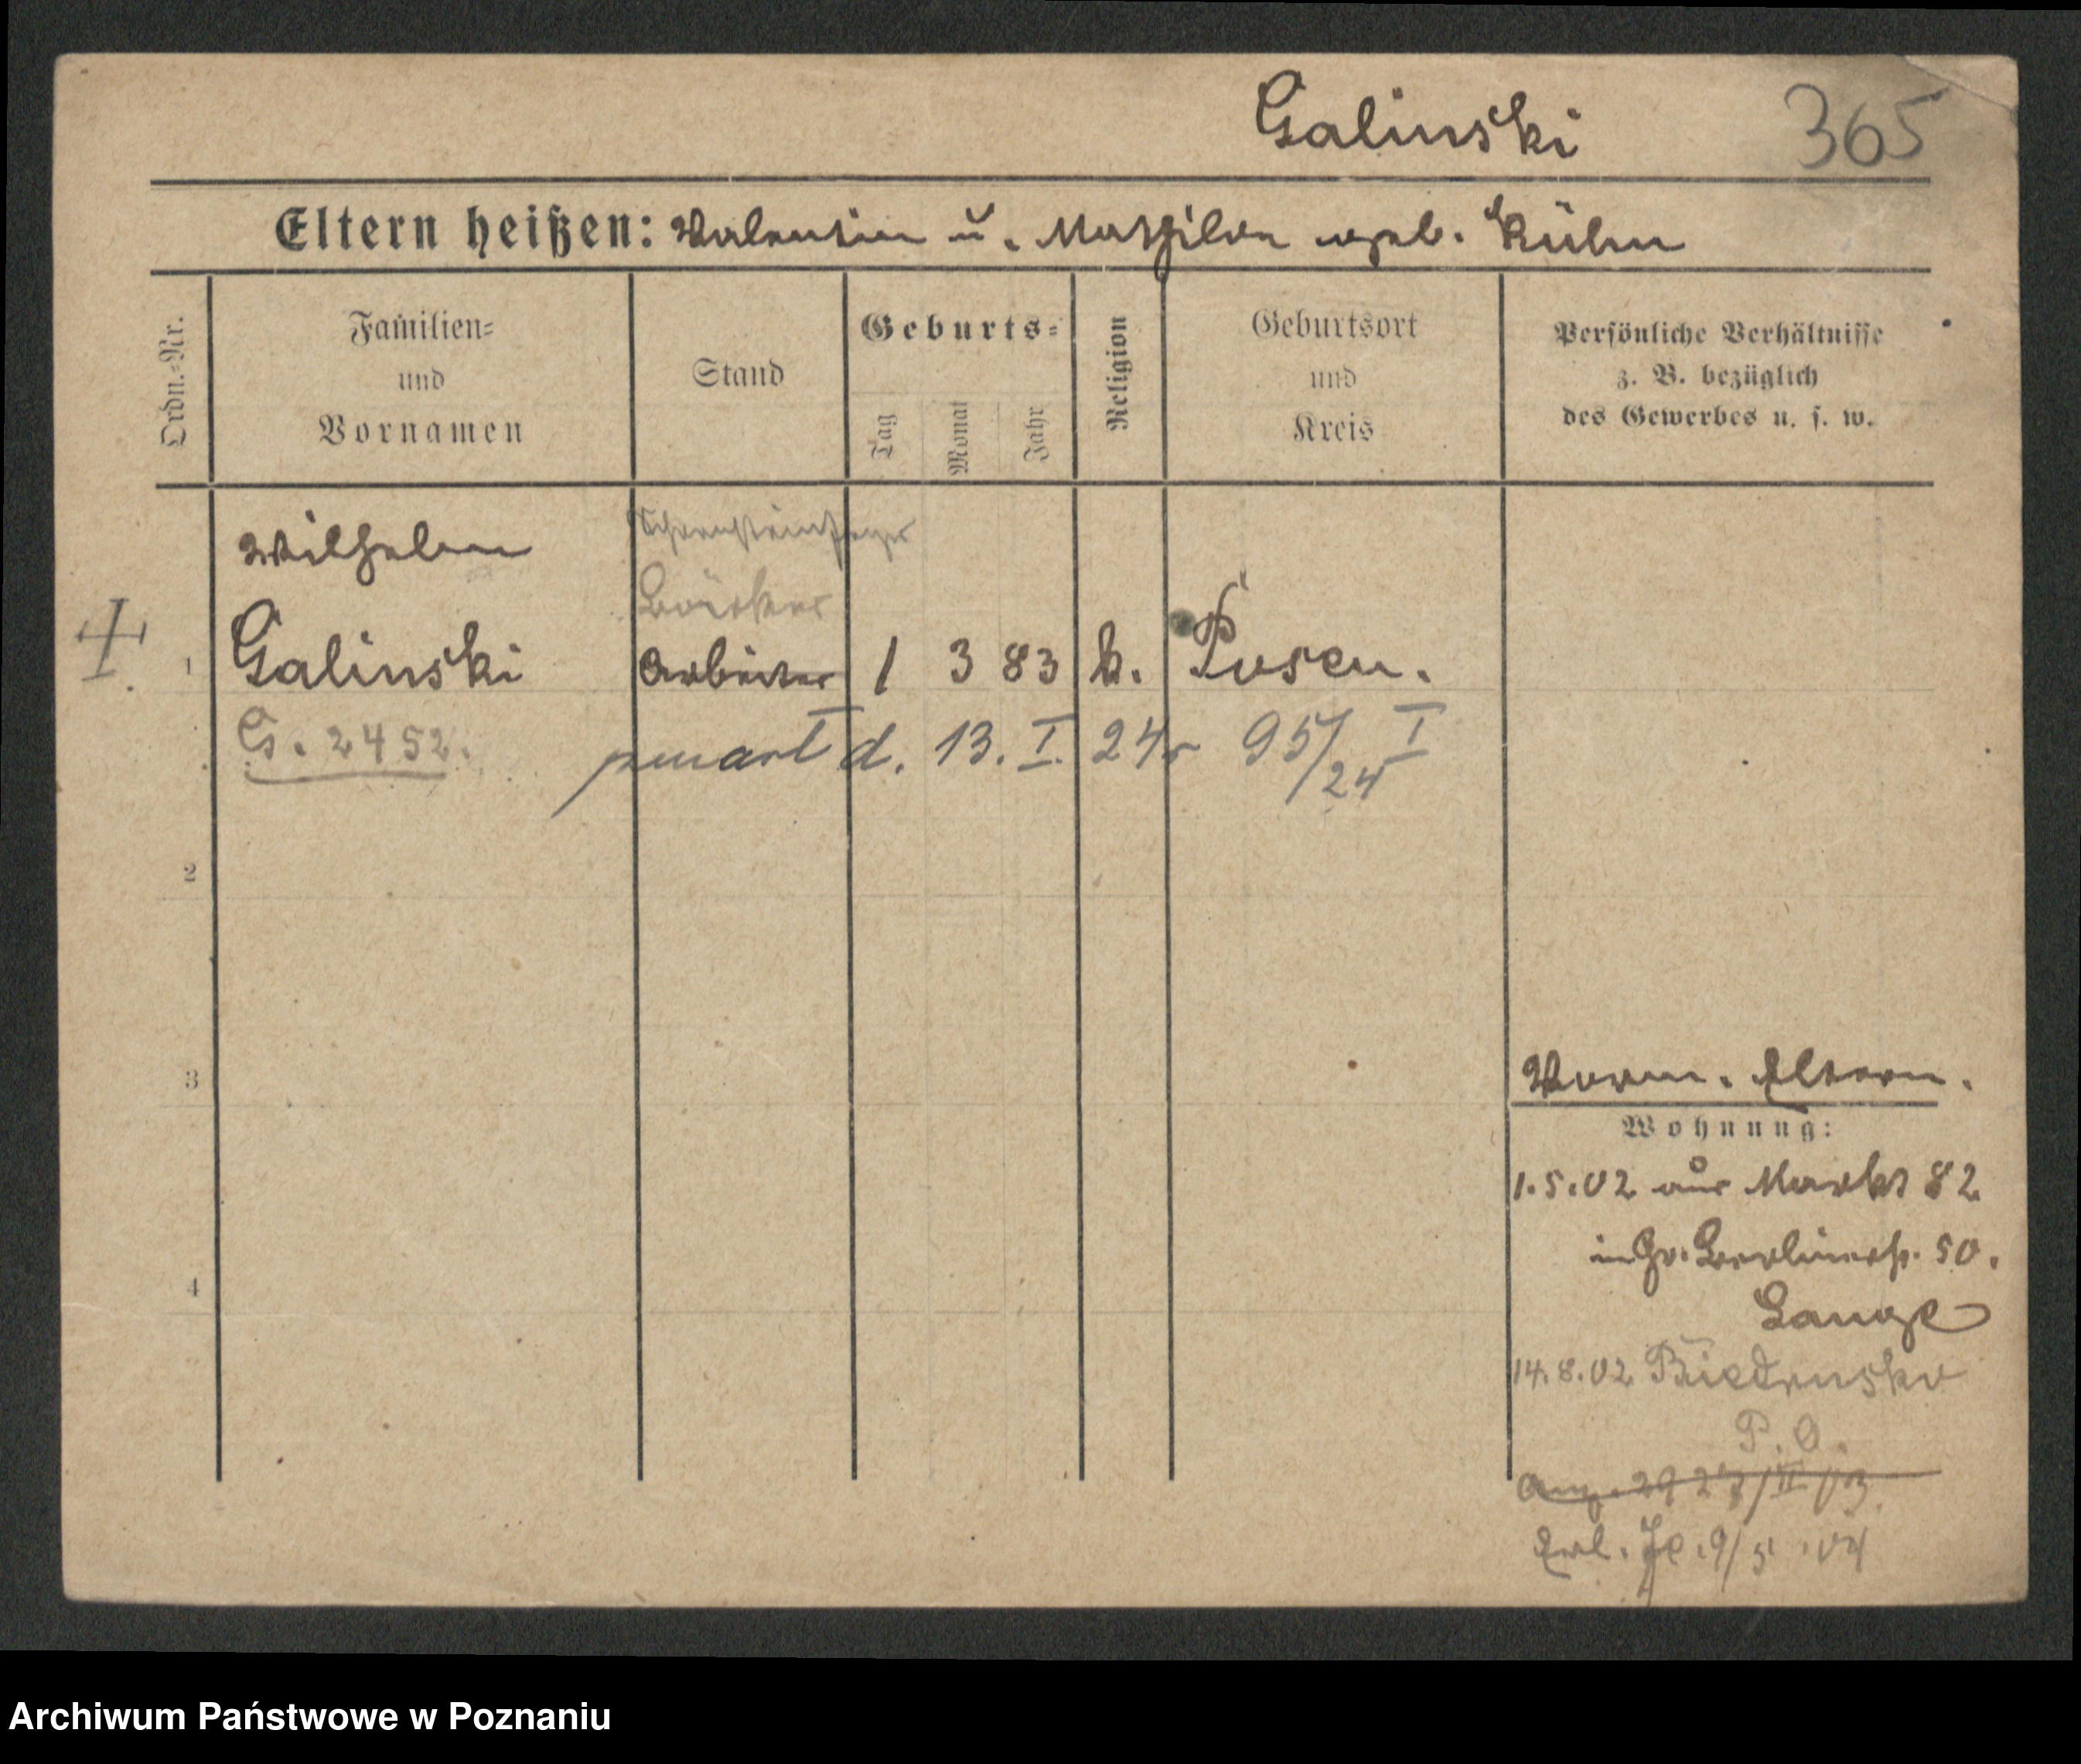 Galinski 365
Eltern heißen: Valentin u. Mathilde geb. Kühn
Ordn.-Nr.
Familien-
und
Vornamen
Stand
Geburts-
Tag Monat Jahr
Religion
Geburtsort
und
Kreis
Persönliche Verhältnisse
z. B. bezüglich
des Gewerbes u. s. w.
Wilhelm Schornsteinfeger
Bäcker
1 Galinski Arbeiter 1 3 83 k. Posen.
G. 2452.
zmarł d. 13. I. 24r 95/24 I
2
3
Vorm. Eltern.
Wohnung:
1.5.02 aus Markt 82
in Gr. Berlinerstr. 50.
4
Lange
14.8.02 Biedrusko
P. O.
Erl. 9/5.04
Archiwum Państwowe w Poznaniu